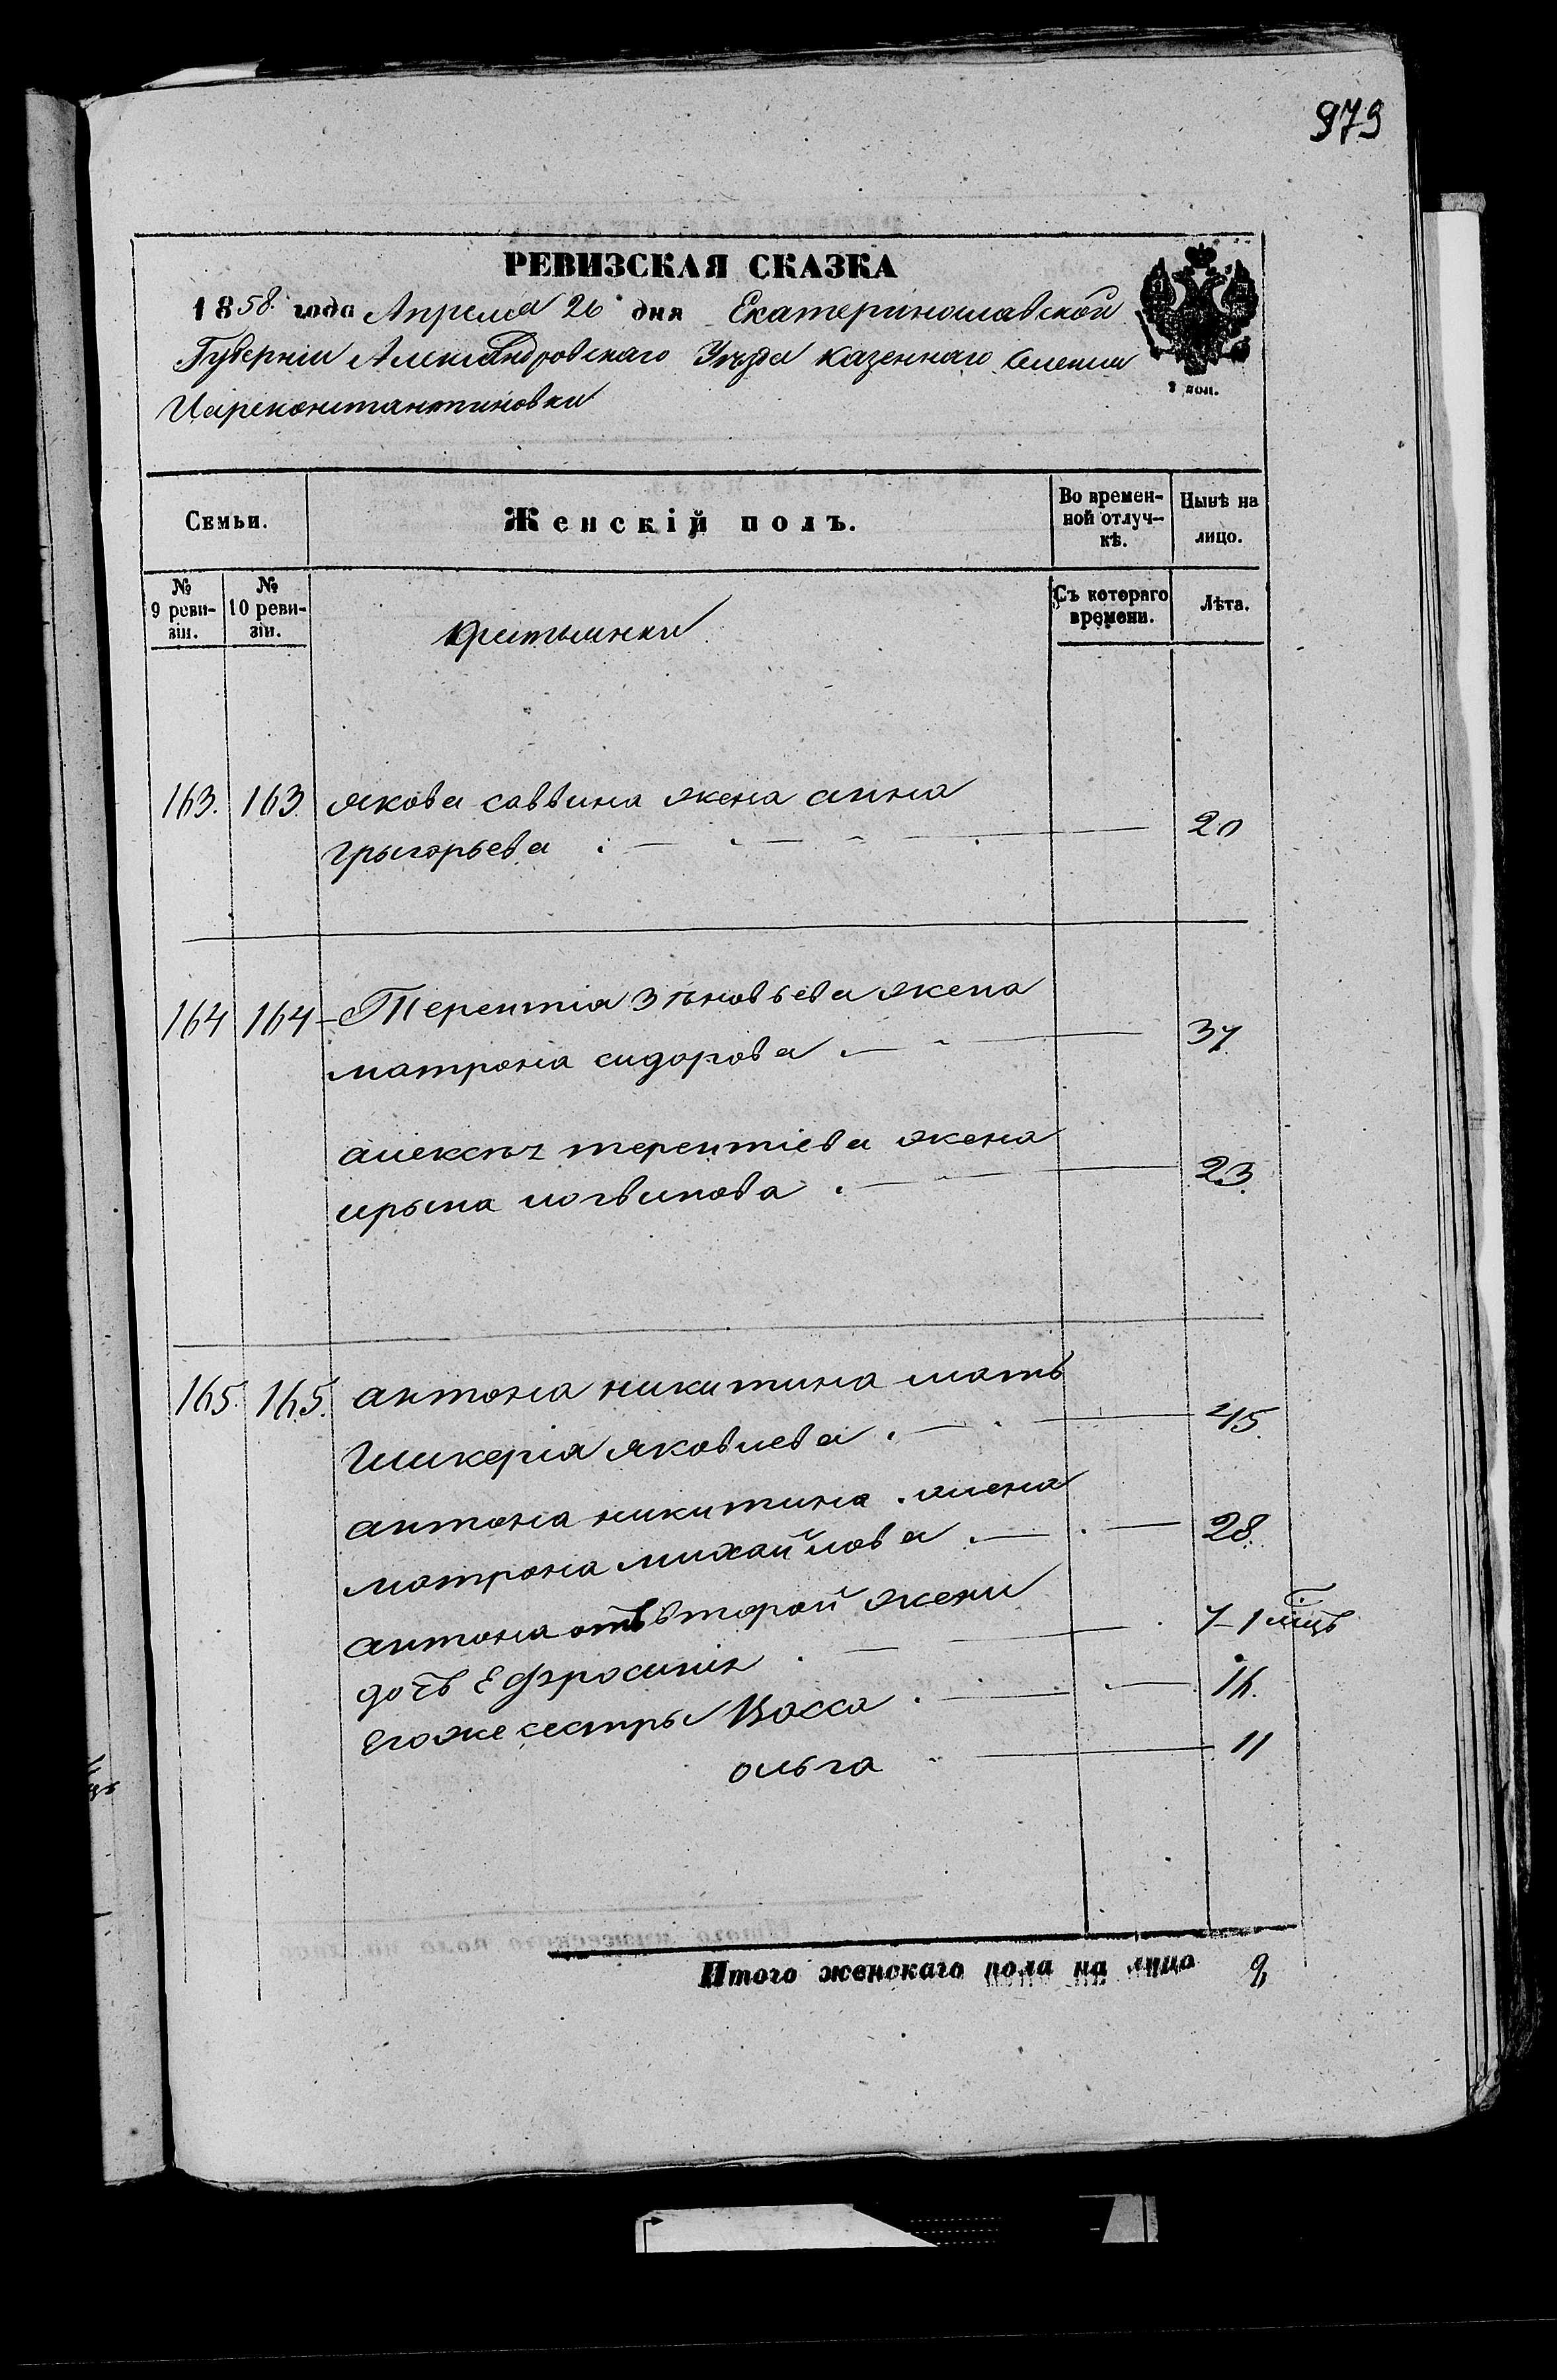 979
РЕВИЗСКАЯ СКАЗКА
1858 года Апреля 26 дня Екатеринославской
Губерніи Александровскаго Уезда казеннаго Селения
Цареконстантиновки
3 коп.
Семьи. Женскій полъ. Во временной отлучкѣ. Нынѣ на лицо.
№ 9 ревизіи. № 10 ревизіи. Съ котораго времени. Лѣта.
крестьянки
163. 163 якова саввина жена анна
грыгорьева 20
164 164 Терентія зѣновьева жена
матрона сидорова 37
алексѣя терентіева жена
ирына логвинова 23.
165. 165. антона никитина мать
гликерія яковлева 45
антона никитина жена
матрона михайлова 28.
антона отъ второй жени
дочь Ефросинія 7-1 мѣцъ
Его же сестры Васса 16.
ольга 11
Итого женскаго пола на лицо 9